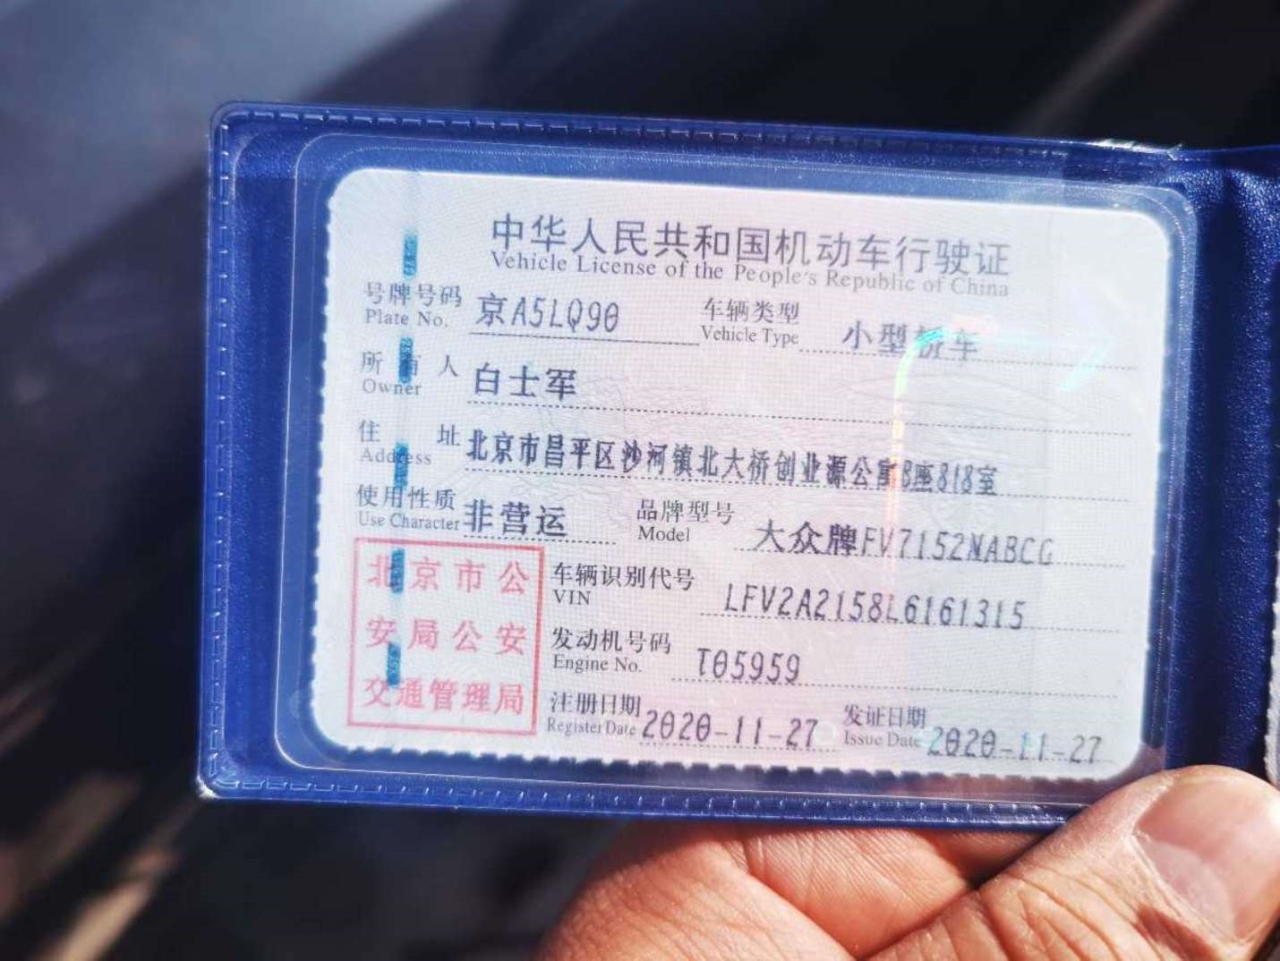 中华人民共和国机动车行驶证
Vehicle License of the People's Republic of China
号牌号码 京A5LQ90 车辆类型 小型轿车
Plate No. Vehicle Type
所有人 白士军
Owner
住址 北京市昌平区沙河镇北大桥创业源公寓B座818室
Address
使用性质 非营运 品牌型号 大众牌FV7152NABCG
Use Character Model
北京市公
安局公安
交通管理局
车辆识别代号 LFV2A2158L6161315
VIN
发动机号码 T05959
Engine No.
注册日期 2020-11-27 发证日期 2020-11-27
Register Date Issue Date